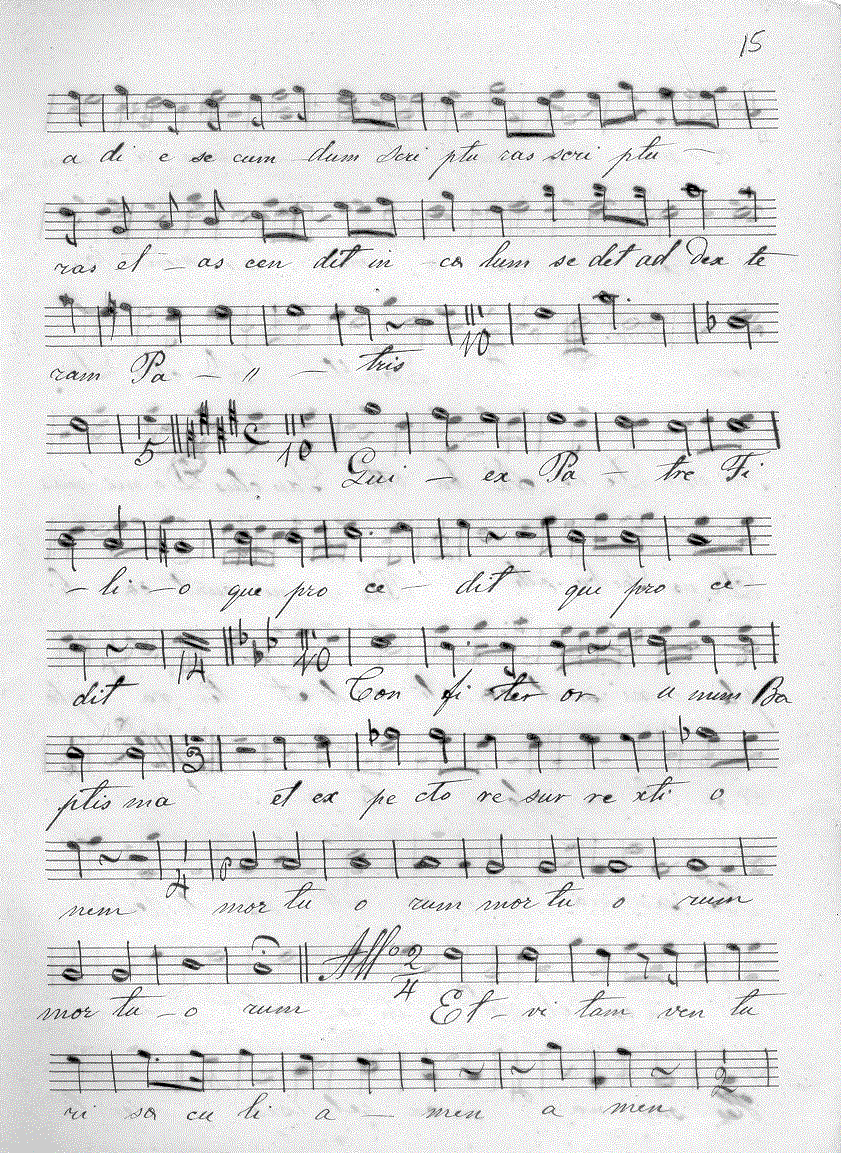 15
a di e se cum dum scri ptu ras scri ptu —
ras et — as cen dit in cœ lum se det ad dex te
ram Pa — " — tris
10
5 10
Qui — ex Pa — tre Fi
— li — o que pro ce — dit que pro ce —
14 10
dit Con fi ter or u num Ba
3
ptis ma et ex pe cto re sur re xti o
4 p
nem mor tu o rum mor tu o rum
All° 2/4
mor tu — o rum Et — vi tam ven tu
2
ri sœ cu li a — men a men